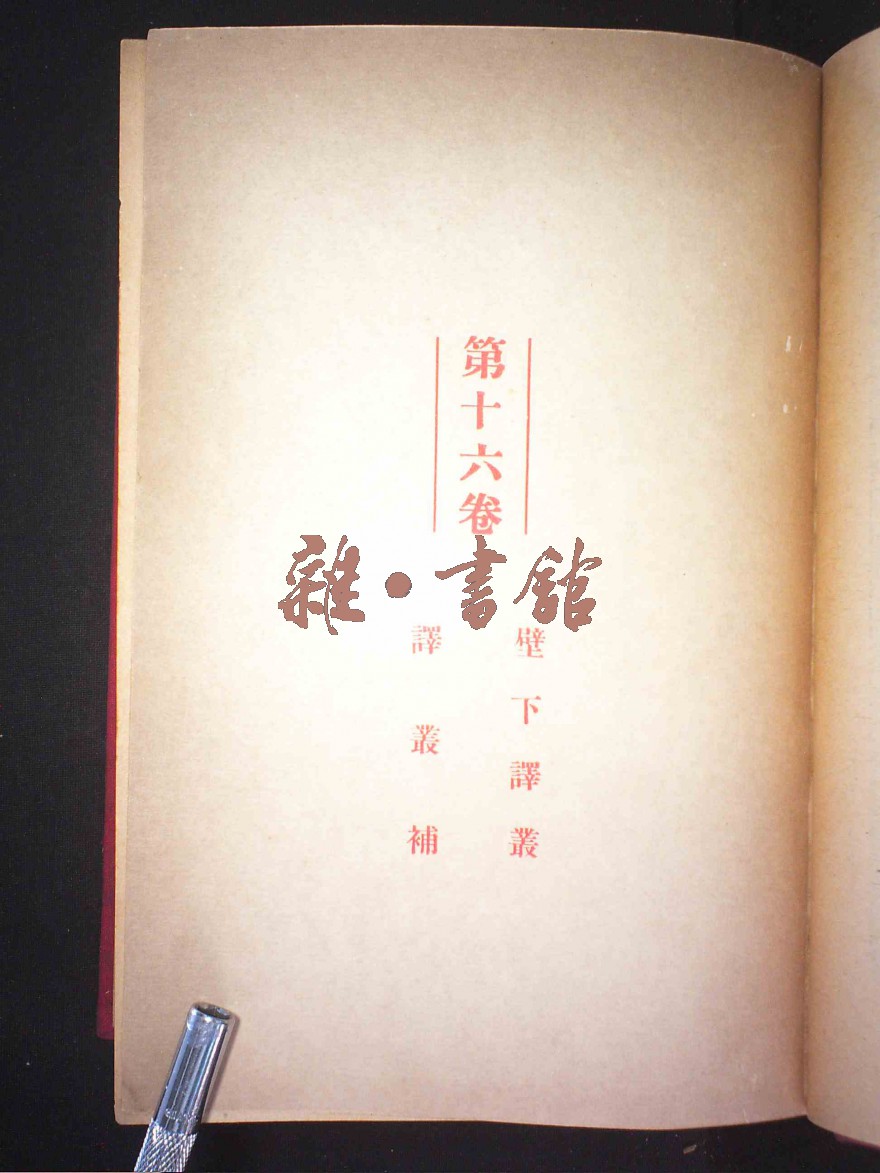 第十六卷
雜·書館
壁下譯叢
譯叢補